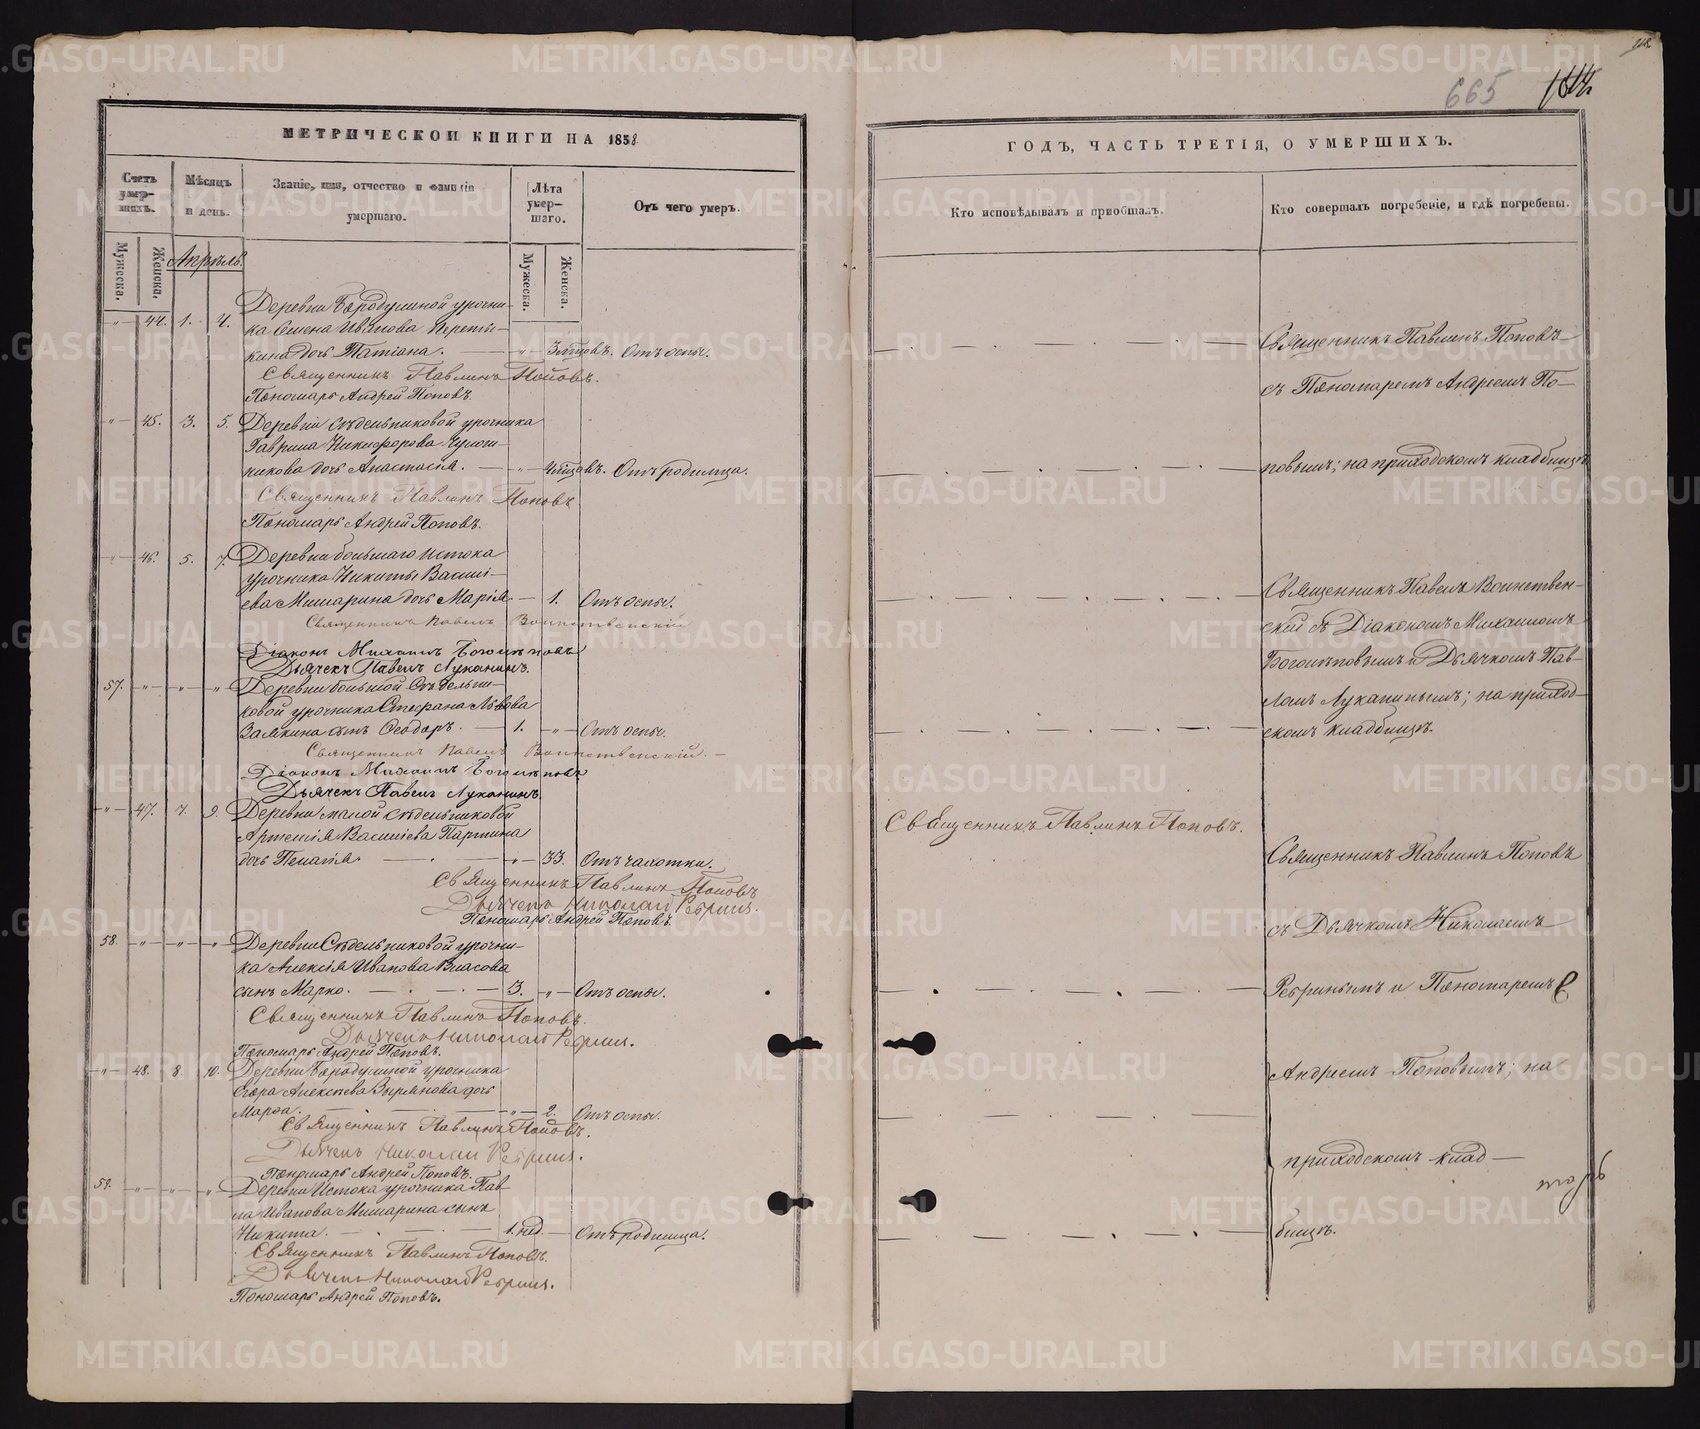 МЕТРИЧЕСКОЙ КНИГИ НА 1858
Счетъ умершихъ.
Мѣсяцъ и день.
Званіе, имя, отчество и фамилія умершаго.
Лѣта умершаго.
Отъ чего умеръ.
Мужеска. Женска.
Мужеска. Женска.
Апрѣль.
Деревни Бородулиной урочни-
44. 1. 4. ка Семена Иванова Перети-
кина дочь Татіана. 3 мѣсяцовъ. Отъ оспы.
Священникъ Павлинъ Поповъ.
Пономарь Андрей Поповъ.
45. 3. 5. Деревни Сѣдельниковой урочника
Гаврила Никифорова
никова дочь Анастасія. мѣсяцовъ. Отъ родимца.
Священникъ Павлинъ Поповъ
Пономарь Андрей Поповъ.
46. 5. 7. Деревни большаго Истока
урочника Никиты Василі-
ева Мишарина дочь Марія 1. Отъ оспы.
Священникъ Павелъ Воинственскій
Діаконъ Михаилъ Боголѣповъ
Дьячекъ Павелъ Луканинъ.
57. Деревни большой Сѣдельни-
ковой урочника Стефана Львова
Залкина сынъ Ѳеодоръ. 1. Отъ оспы.
Священникъ Павелъ Воинственскій.
Діаконъ Михаилъ Боголѣповъ
Дьячекъ Павелъ Луканинъ.
47. 7. 9. Деревни малой Сѣдельниковой
Артемія Василіева Паршина
дочь Пелагія. 33. Отъ чахотки.
Священникъ Павлинъ Поповъ
Дьячекъ Николай Ребринъ.
Пономарь Андрей Поповъ.
58. Деревни Сѣдельниковой урочни-
ка Алексія Иванова Власова
сынъ Марко. 3. Отъ оспы.
Священникъ Павлинъ Поповъ.
Дьячекъ Николай Ребринъ.
Пономарь Андрей Поповъ.
48. 8. 10. Деревни Бородулиной урочника
Егора Алексѣева Зырянова дочь
Марѳа. 2. Отъ оспы.
Священникъ Павлинъ Поповъ.
Дьячекъ Николай Ребринъ.
Пономарь Андрей Поповъ.
59. Деревни Истока урочника Пав
ла Иванова Мишарина сынъ
Никита. 1. нед. Отъ родимца.
Священникъ Павлинъ Поповъ.
Дьячекъ Николай Ребринъ.
Пономарь Андрей Поповъ.
665
ГОДЪ, ЧАСТЬ ТРЕТІЯ, О УМЕРШИХЪ.
Кто исповѣдывалъ и пріобщалъ.
Кто совершалъ погребеніе, и гдѣ погребены.
Священникъ Павлинъ Поповъ
съ Пономаремъ Андреемъ По-
повымъ; на приходскомъ кладбищѣ
Священникъ Павелъ Воинствен-
скій съ Діакономъ Михаиломъ
Боголѣповымъ и Дьячкомъ Пав-
ломъ Луканинымъ; на приход-
скомъ кладбищѣ.
Священникъ Павлинъ Поповъ.
Священникъ Павлинъ Поповъ
съ Дьячкомъ Николаемъ
Ребринымъ и Пономаремъ
Андреемъ Поповымъ; на
приходскомъ клад-
бищѣ.
тарь
METRIKI.GASO-URAL.RU